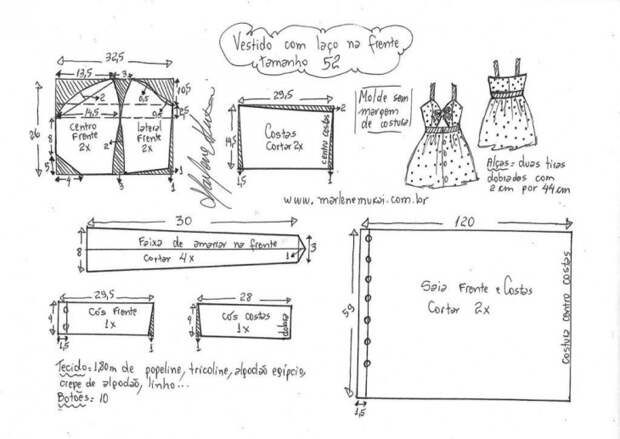 Vestido com laço na frente
tamanho 52
32,5
13,5
3
2
0,5
10,5
2,5
26
14,5
8
5
4
Centro
Frente
2x
lateral
Frente
2x
2
3
1
29,5
2
14,5
Costas
Cortar 2x
centro costas
1
Molde sem
margem
de costura
Alças = duas tiras
dobradas com
2 cm por 44 cm
www.marlenemukai.com.br
30
8
Faixa de amarrar na frente
Cortar 4x
1
3
29,5
4
Cós Frente
1x
1,5
1
28
4
Cós costas
1x
dobra
1
120
59
Saia Frente e Costas
Cortar 2x
Costura centro costas
1,5
Tecido = 1,80m de popeline, tricoline, algodão egípcio,
crepe de algodão, linho...
Botões = 10